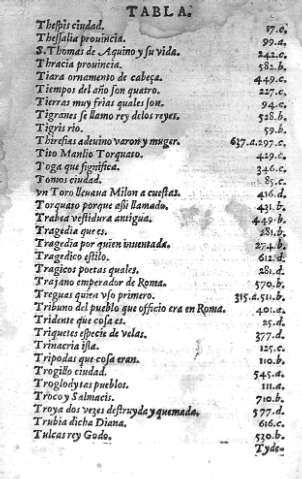 TABLA.
Thespis ciudad. 57.c.
Thessalia prouincia. 99.a.
S. Thomas de Aquino y su vida. 242.c.
Thracia prouincia. 582.b.
Tiara ornamento de cabeça. 449.c.
Tiempos del año son quatro. 227.c.
Tierras muy frias quales son. 94.c.
Tigranes se llamo rey de los reyes. 528.b.
Tigris rio. 59.b.
Thiresias adeuino varon y muger. 637.a.297.c.
Tito Manlio Torquato. 429.c.
Toga que significa. 346.c.
Tomos ciudad. 85.c.
vn Toro lleuaua Milon a cuestas. 416.d.
Torquato porque assi llamado. 431.b.
Trabea vestidura antigua. 449.b.
Tragedia que es. 281.b.
Tragedia por quien inuentada. 274.b.
Tragedico estilo. 612.d.
Tragicos poetas quales. 281.d.
Trajano emperador de Roma. 570.b.
Treguas quien vso primero. 315.a.511.b.
Tribuno del pueblo que officio era en Roma. 401.a.
Tridente que cosa es. 25.d.
Triquetes especie de velas. 377.d.
Trinacria isla. 125.c.
Tripodas que cosa eran. 110.b.
Trogillo ciudad. 545.a.
Troglodytas pueblos. 111.a.
Troco y Salmacis. 710.b.
Troya dos vezes destruyda y quemada. 577.d.
Trubia dicha Diana. 616.c.
Tulcas rey Godo. 530.b.
Tyde-